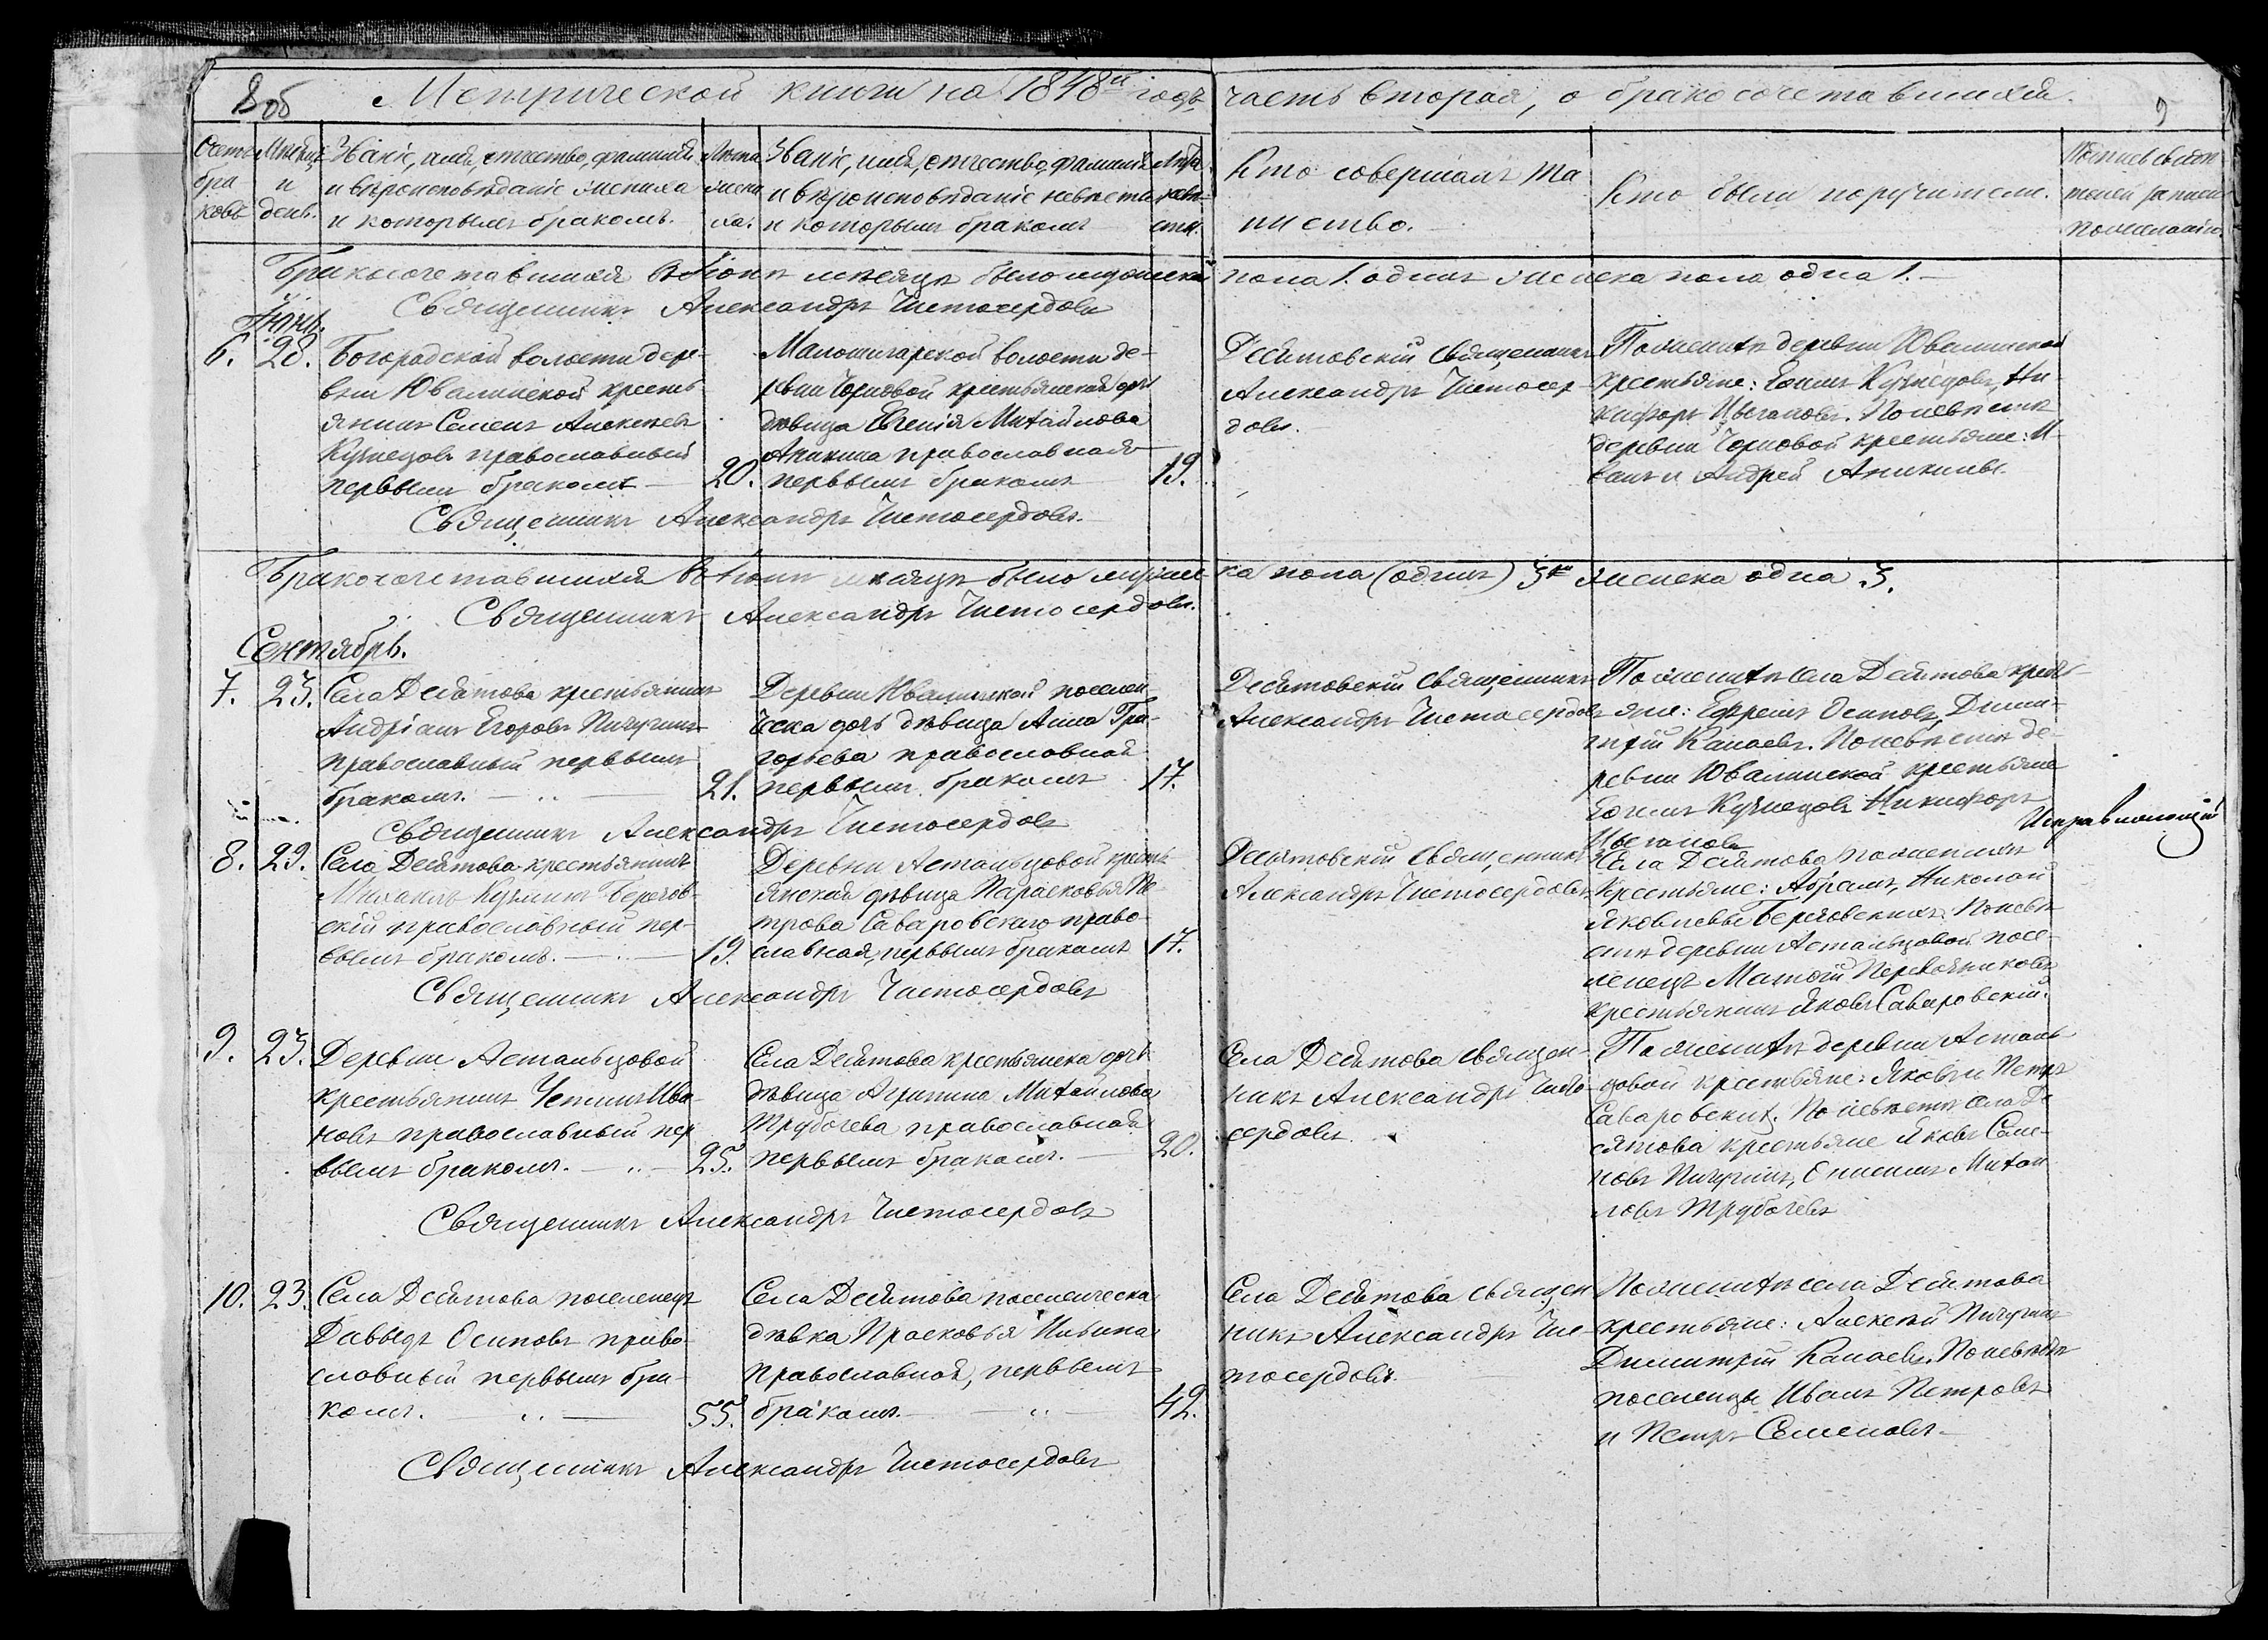 8 об
Метрической книги на 1848й годъ часть вторая, о бракосочетавшихся.
9
Счетъ бра-
ковъ
Мѣсяцъ
и
день.
Званіе, имя, отчество, фамилія
и вѣроисповѣданіе жениха
и которымъ бракомъ.
Лѣта
жени-
ха.
Званіе, имя, отчество, фамилія
и вѣроисповѣданіе невѣсты
и которымъ бракомъ
Лѣта
невѣ-
сты.
Кто совершалъ та
инство.
Кто были поручители.
Бракосочетавшихся въ Іюнѣ мѣсяцѣ было мужеска пола 1. одинъ женска пола одна 1.
Священникъ Александръ Чистосердовъ
Іюнь.
6. 28.
Богорадской волости дере-
вни Ювалинской кресть
янинъ Семенъ Алексѣевъ
Кузнецовъ православный
первымъ бракомъ
20.
Малошегарской волости де-
ревни Черновой крестьянская дочь
дѣвица Евгенія Михайлова
Аникина православная
первымъ бракомъ
19.
Десятовскій Священникъ
Александръ Чистосер-
довъ.
По женихѣ деревни Ювалинской
крестьяне: Кузнецовъ, Ни-
кифоръ Цыгановъ. По невѣстѣ
деревни Черновой крестьяне: И-
ванъ и Андрей Аникины.
Священникъ Александръ Чистосердовъ.
Бракосочетавшихся въ Іюнѣ мѣсяцѣ было мужес-
ка пола (одинъ) женска одна
Священникъ Александръ Чистосердовъ.
Сентябрь.
7. 23.
Села Десятова крестьянинъ
Андріанъ Егоровъ Пичугинъ
православный первымъ
бракомъ.
21.
Деревни Ювалинской поселен-
ческа дочь дѣвица Анна Гри-
горьева православной
первымъ бракомъ
17.
Десятовскій Священникъ
Александръ Чистосердовъ
По женихѣ села Десятова кресть-
яне: Ефремъ Осиповъ, Дими-
трій Канаевъ. По невѣстѣ де-
ревни Ювалинской крестьяне
Кузнецовъ Никифоръ
Цыгановъ
Священникъ Александръ Чистосердовъ
8. 29.
Села Десятова крестьянинъ
Михаилъ Кузминъ Березов-
скій православный пер-
вымъ бракомъ.
19.
Деревни Астальцовой кресть-
янская дѣвица Парасковья Пе-
трова Саваровскаго право-
славная, первымъ бракомъ
17.
Десятовскій Священникъ
Александръ Чистосердовъ
Села Десятова по женихѣ
крестьяне: Абрамъ, Николай
Яковлевы Березовскихъ. По невѣ-
стѣ деревни Астальцовой посе-
ленецъ Матвій Перевозниковъ
крестьянинъ Яковъ Саваровскій.
Священникъ Александръ Чистосердовъ
9. 23.
Деревни Астальцовой
крестьянинъ Ива-
новъ православный пер
вымъ бракомъ.
25.
Села Десятова крестьянска дочь
дѣвица Агрипина Михайлова
Трубочева православной
первымъ бракомъ.
20.
Села Десятова священ-
никъ Александръ Чисто-
сердовъ.
По женихѣ деревни Асталь-
цовой крестьяне: Яковъ и Петръ
Саваровскихъ. По невѣстѣ села Де
сятова крестьяне Яковъ Семе-
новъ Пичугинъ, Михай
ловъ Трубочевъ
Священникъ Александръ Чистосердовъ
10. 23.
Села Десятова поселенецъ
Давыдъ Осиповъ право
славный первымъ бра-
комъ.
55.
Села Десятова поселенческа
дѣвка Прасковья Ильина
православной, первымъ
бракомъ.
42.
Села Десятова священ
никъ Александръ Чис-
тосердовъ.
По женихѣ села Десятова
крестьяне: Алексѣй Пичугинъ
Димитрій Канаевъ. По невѣстѣ
поселенцы Иванъ Петровъ
и Петръ Семеновъ.
Священникъ Александръ Чистосердовъ